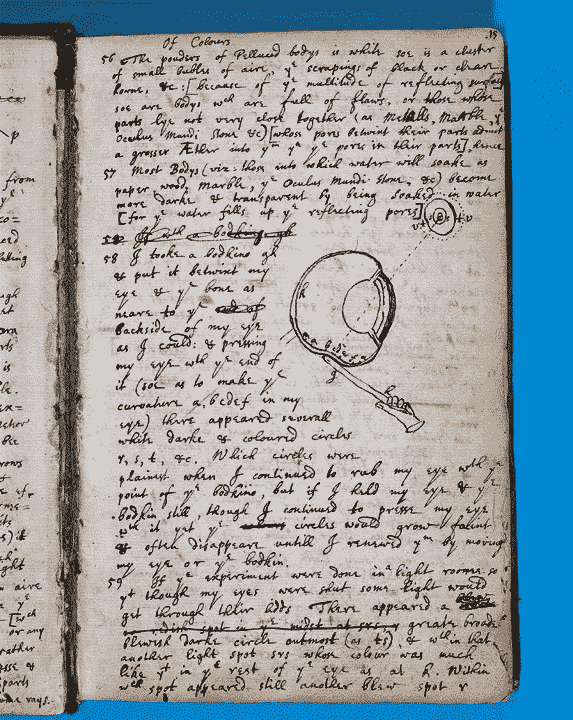 15
Of Colours
56 The pouders of Pellucd bodys is white soe is a cluster
of small bubles of aire, yᵉ scrapings of black or cleare
horne, &c: [because of yᵉ multitude of reflecting surfaces
soe are bodys wᶜʰ are full of flaws, or those whose
parts lye not very close together (as Metalls, Marble, yᵉ
Oculus Mundi Stone &c) [whose pores betwixt their parts admit
a grosser Æther into yᵐ yⁿ yᵉ pores in their parts], hence
57 Most Bodys (viz: those into which water will soake as
paper, wood, marble, yᵉ Oculus Mundi Stone, &c) become
more darke & transparent by being soaked in water
[for yᵉ water fills up yᵉ reflecting pores]
58 I tooke a bodkine gh
& put it betwixt my
eye & yᵉ bone as
neare to yᵉ
backside of my eye
as I could: & pressing
my eye wᵗʰ yᵉ end of
it (soe as to make yᵉ
curvature a, bcdef in my
eye) there appeared severall
white darke & coloured circles
r, s, t, &c. Which circles were
plainest when I continued to rub my eye wᵗʰ yᵉ
point of yᵉ bodkine, but if I held my eye & yᵉ
bodkin still, though I continued to presse my eye
wᵗʰ it yet yᵉ circles would grow faint
& often disappeare untill I renewed yᵐ by moving
my eye or yᵉ bodkin.
59 If yᵉ experiment were done in a light roome so
yᵗ though my eyes were shut some light would
get through their lidds There appeared a
greate broade
blewish darke circle outmost (as ts), & wᵗʰin that
another light spot srs whose colour was much
like yᵗ in yᵉ rest of yᵉ eye as at k. Within
wᶜʰ spot appeared still another blew spot r